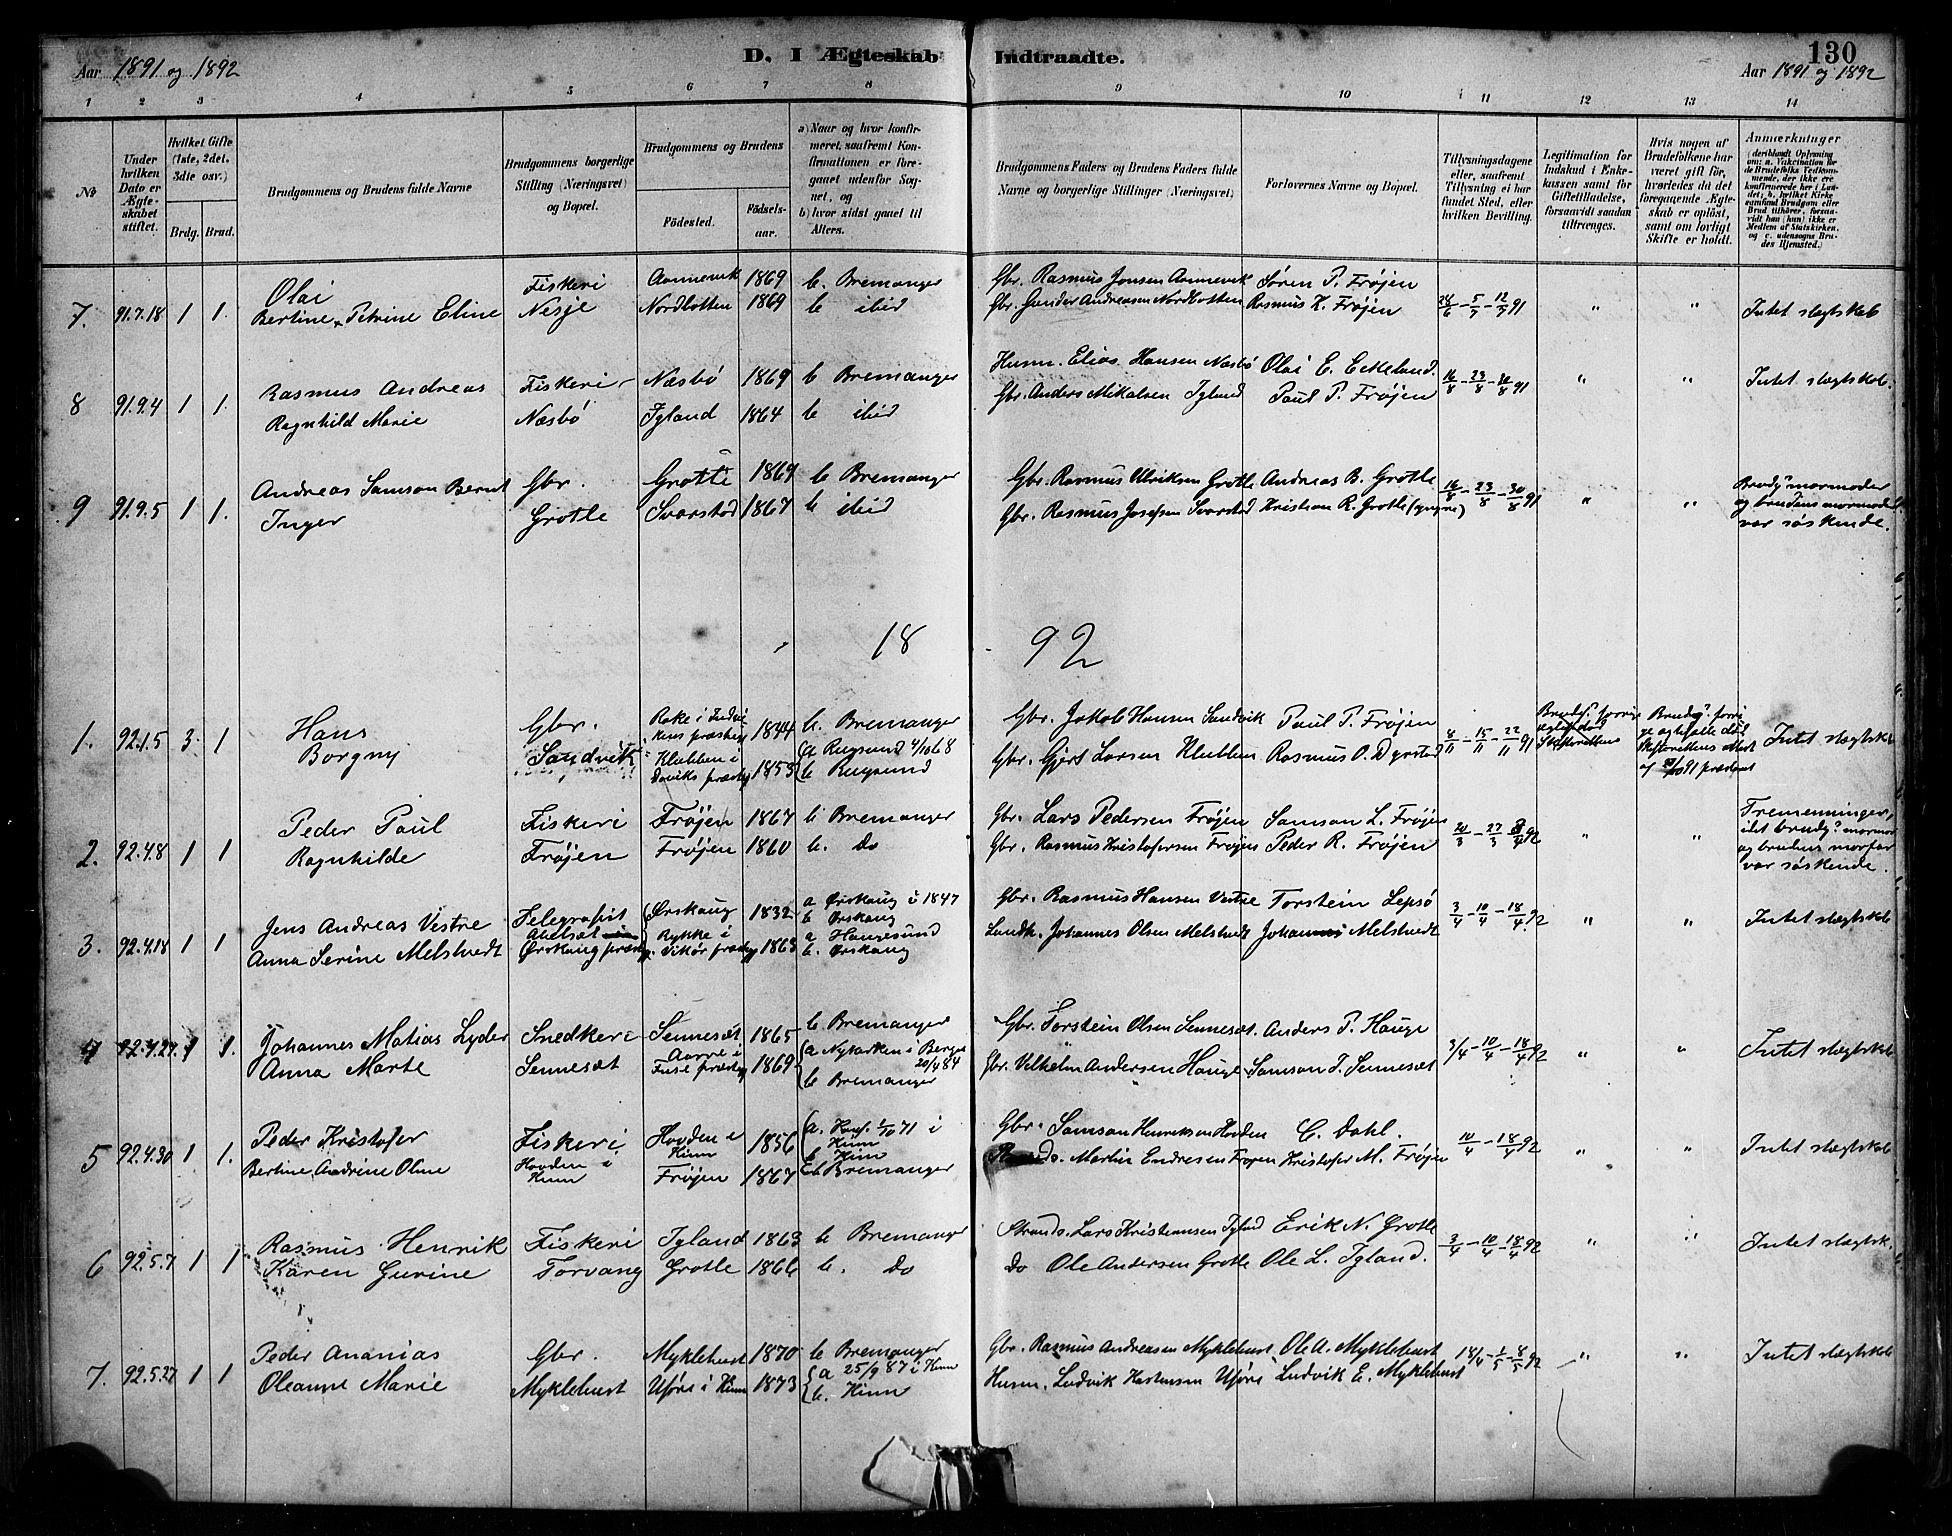 130
Aar 1891 og 1892
D. I Ægteskab Indtraadte.
Aar 1891 og 1892
1 2 3 4 5 6 7 8 9 10 11 12 13 14
No
Under hvilken Dato er Ægteskabet stiftet.
Hvilket Gifte (1ste, 2det, 3die osv.)
Brdg. Brud.
Brudgommens og Brudens fulde Navne
Brudgommens borgerlige Stilling (Næringsvei) og Bopæl.
Brudgommens og Brudens
Födested.
Födsels-aar.
a) Naar og hvor konfirmeret, saafremt Konfirmationen er foregaaet udenfor Sognet, og
b) hvor sidst gaaet til Alters.
Brudgommens Faders og Brudens Faders fulde Navne og borgerlige Stillinger (Næringsvei)
Forlovernes Navne og Bopæl.
Tillysningsdagene eller, saafremt Tillysning ei har fundet Sted, efter hvilken Bevilling.
Legitimation for Indskud i Enkekassen samt for Giftetilladelse, forsaavidt saadan tiltrænges.
Hvis nogen af Brudefolkene har været gift før, hvorledes da det foregaaende Ægteskab er opløst, samt om lovligt Skifte er holdt.
Anmærkninger
(deriblandt Oplysning om: a. Vakcination for de Brudefolks Vedkommende, der ikke ere konfirmerede her i Landet; b. hvilket Kirkesamfund Brudgom eller Brud tilhører, forsaavidt han (hun) ikke er Medlem af Statskirken, og c. udensogns Brudes Hjemsted.)
Olai Fiskeri 1869 b Bremanger Gbr. Rasmus Jonsen Søren P. Frøjen
7. 91.7.18 1 1. Bertine Petrine Eline Nesje Nordbotten 1869 b ibid Gbr. Gunder Andreasen Nordbotten Rasmus K. Frøjen 28/6 - 5/7 - 12/7 91 " " Intet slægtskab
Rasmus Andreas Fiskeri Næsbø 1869 b Bremanger Husm. Elias Hansen Næsbø Olai E.
8 91.9.4 1 1. Ragnhild Marie Næsbø Igland 1864 b ibid Gbr. Anders Mikalsen Igland Paul P. Frøjen 16/8 - 23/8 - 30/8 91 " " Intet slægtskab.
Andreas Samson Bernt Gbr. Grotle 1869 b Bremanger Gbr. Rasmus Ulriksen Grotle Andreas B. Grotle
9 91.9.5 1 1. Inger Grotle Svarstad 1867 b ibid Gbr. Rasmus Josefsen Svarstad Kristian R. Grotle (yngre) 16/8 - 23/8 - 30/8 91 " " Brudg.s mormoder og brudens mormoder var søskende.
18 92
Hans Gbr. 1844 b. Bremanger Gbr. Jakob Hansen Sandvik Paul P. Frøjen
1. 92.1.5 3. 1 Borgny Sandvik Klubben i Daviks præstegj. 1853 (a Rugsund 4/10 68 b Rugsund Gbr. Gjert Larsen Klubben Rasmus O. 8/11 - 15/11 - 22/11 91 Intet slægtskab
Peder Paul Fiskeri Frøjen 1867 b Bremanger Gbr. Lars Pedersen Frøjen Samson L. Frøjen
2. 92.4.8 1 1 Ragnhilde Frøjen Frøjen 1860 b. do Gbr. Rasmus Kristofersen Frøjen Peder R. Frøjen 20/3 - 27/3 - 3/4 92 " " Tremenninger, idet brudg.s mormor og brudens morfar var søskende.
Jens Andreas Vestre Telegrafist Ørskoug 1832 a Ørskoug i 1847 b Ørskoug Gbr. Rasmus Hansen Vestre Torstein Lepsø
3. 92.4.18 1 1 Anna Serine Melstvedt Ørskoug præstegj. Rykke i 1863 a Haugesund b. Ørskoug Landh. Johannes Olsen Melstvedt Johannes Melstvedt 3/4 - 10/4 - 18/4 92 " " Intet slægtskab
Johannes Matias Lyder Snedkeri Sennesæt 1865 b Bremanger Gbr. Torstein Olsen Sennesæt Anders P. Hauge
4 92.4.27 1 1. Anna Marte Sennesæt Fuse præstegj 1869 (a Nykirken i Bergen 20/4 84 b Bremanger Gbr. Vilhelm Andersen Hauge Samson T. Sennesæt 3/4 - 10/4 - 18/4 92 " " Intet slægtskab
Peder Kristofer Fiskeri Hovden i Kinn 1856 (a. Konf. 1/10 71 i Kinn b Kinn Gbr. Samson Henriksen Hovden C. Dahl.
5 92.4.30 1 1. Bertine Andrine Oline Hovden i Kinn Frøjen 1867 b Bremanger Martin Endresen Frøjen Kristofer M. Frøjen 10/4 - 18/4 92 " " Intet slægtskab
Rasmus Henrik Fiskeri Igland 1863 b Bremanger Strands. Lars Kristiansen Igland Erik N. Grotle
6 92.5.7 1 1 Karen Gurine Torvang Grotle 1866 b. do do Ole Andersen Grotle Ole L. Igland. 3/4 - 10/4 - 18/4 92 " " Intet slægtsk.
Peder Ananias Gbr. Myklebust 1870 b Bremanger Gbr. Rasmus Andreasen Myklebust Ole A. Myklebust
7. 92.5.27 1 1 Oleanne Marie Myklebust Uføre i Kinn 1873 (a 25/9 87 i Kinn b. Kinn Husm. Ludvik Karstensen Uføre Ludvik E. Myklebust 18/4 - 1/5 - 8/5 92 " " Intet slægtskab